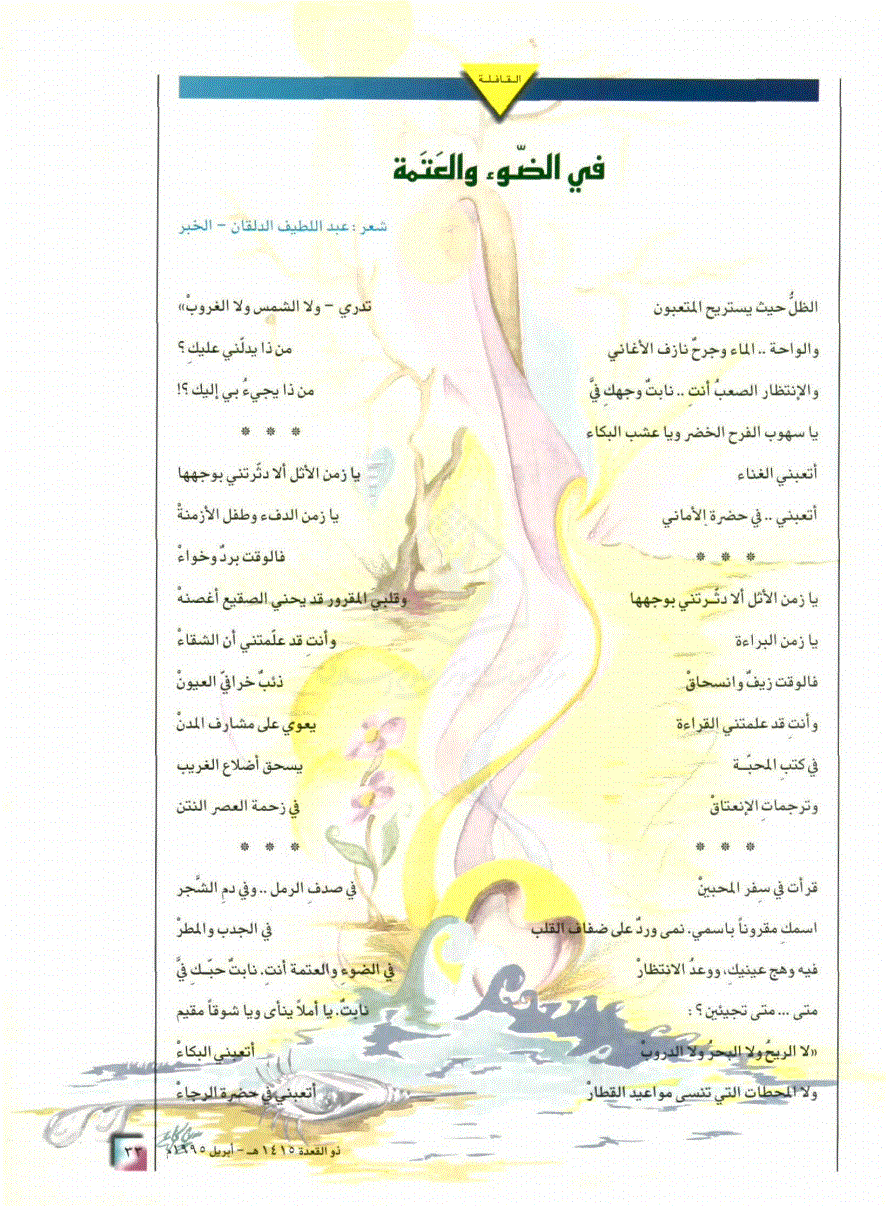 القافلة
في الضّوء والعَتَمة
شعر : عبد اللطيف الدلقان – الخبر
الظلُّ حيث يستريح المتعبون
والواحة .. الماء وجرحٌ نازف الأغاني
والإنتظار الصعبُ أنتِ .. نابتٌ وجهكِ فيَّ
يا سهوب الفرح الخضر ويا عشب البكاء
أتعبني الغناء
أتعبني .. في حضرة الأماني
* * *
يا زمن الأثل ألا دثّـرتني بوجهها
يا زمن البراءة
فالوقت زيفٌ وانسحاقْ
وأنتِ قد علمتني القراءة
في كتبِ المحبّــة
وترجماتِ الإنعتاقْ
* * *
قرأت في سِفر المحبينْ
اسمكِ مقروناً باسمي. نمى وردٌ على ضفاف القلب
فيه وهج عينيكِ، ووعدُ الانتظارْ
متى ... متى تجيئين ؟ :
«لا الريحُ ولا البحرُ ولا الدروبْ
ولا المحطات التي تنسى مواعيد القطارْ
تدري – ولا الشمس ولا الغروبْ»
من ذا يدلّني عليكِ ؟
من ذا يجيءُ بي إليك ؟!
* * *
يا زمن الأثل ألا دثّرتني بوجهها
يا زمن الدفء وطفل الأزمنةْ
فالوقت بردٌ وخواءْ
وقلبي المقرور قد يحني الصقيع أغصنهْ
وأنتِ قد علّمتني أن الشقاءْ
ذئبٌ خرافيّ العيونْ
يعوي على مشارف المدنْ
يسحق أضلاع الغريب
في زحمة العصر النتن
* * *
في صدفِ الرمل .. وفي دمِ الشَّجر
في الجدب والمطرْ
في الضوءِ والعتمة أنتِ. نابتٌ حبّــكِ فيَّ
نابتٌ. يا أملاً ينأى ويا شوقاً مقيم
أتعبني البكاءْ
أتعبني في حضرة الرجاءْ
ذو القعدة ١٤١٥ هـ – أبريل ١٩٩٥م
٣٣